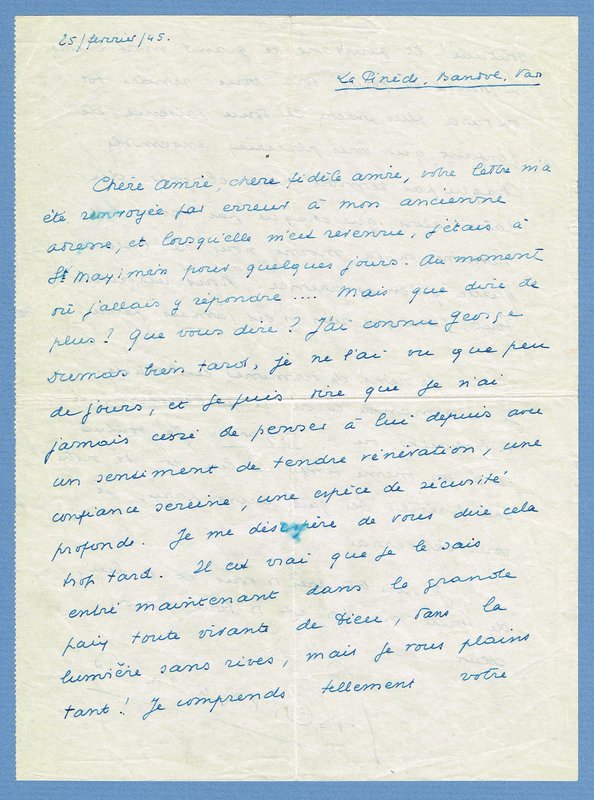 25/février/45.
La Pinède, Bandol, Var
Chère amie, chère fidèle amie, votre lettre m'a
été renvoyée par erreur à mon ancienne
adresse, et lorsqu'elle m'est revenue, j'étais à
St Maximin pour quelques jours. Au moment
où j'allais y repondre .... Mais que dire de
plus ? Que vous dire ? J'ai connu George
Dumas bien tard, je ne l'ai vu que peu
de jours, et je puis dire que je n'ai
jamais cessé de penser à lui depuis avec
un sentiment de tendre vénération, une
confiance sereine, une espèce de sécurité
profonde. Je me désespère de vous dire cela
trop tard. Il est vrai que je le sais
entré maintenant dans la grande
paix toute vivante de Dieu, dans la
lumière sans rives, mais je vous plains
tant ! Je comprends tellement votre